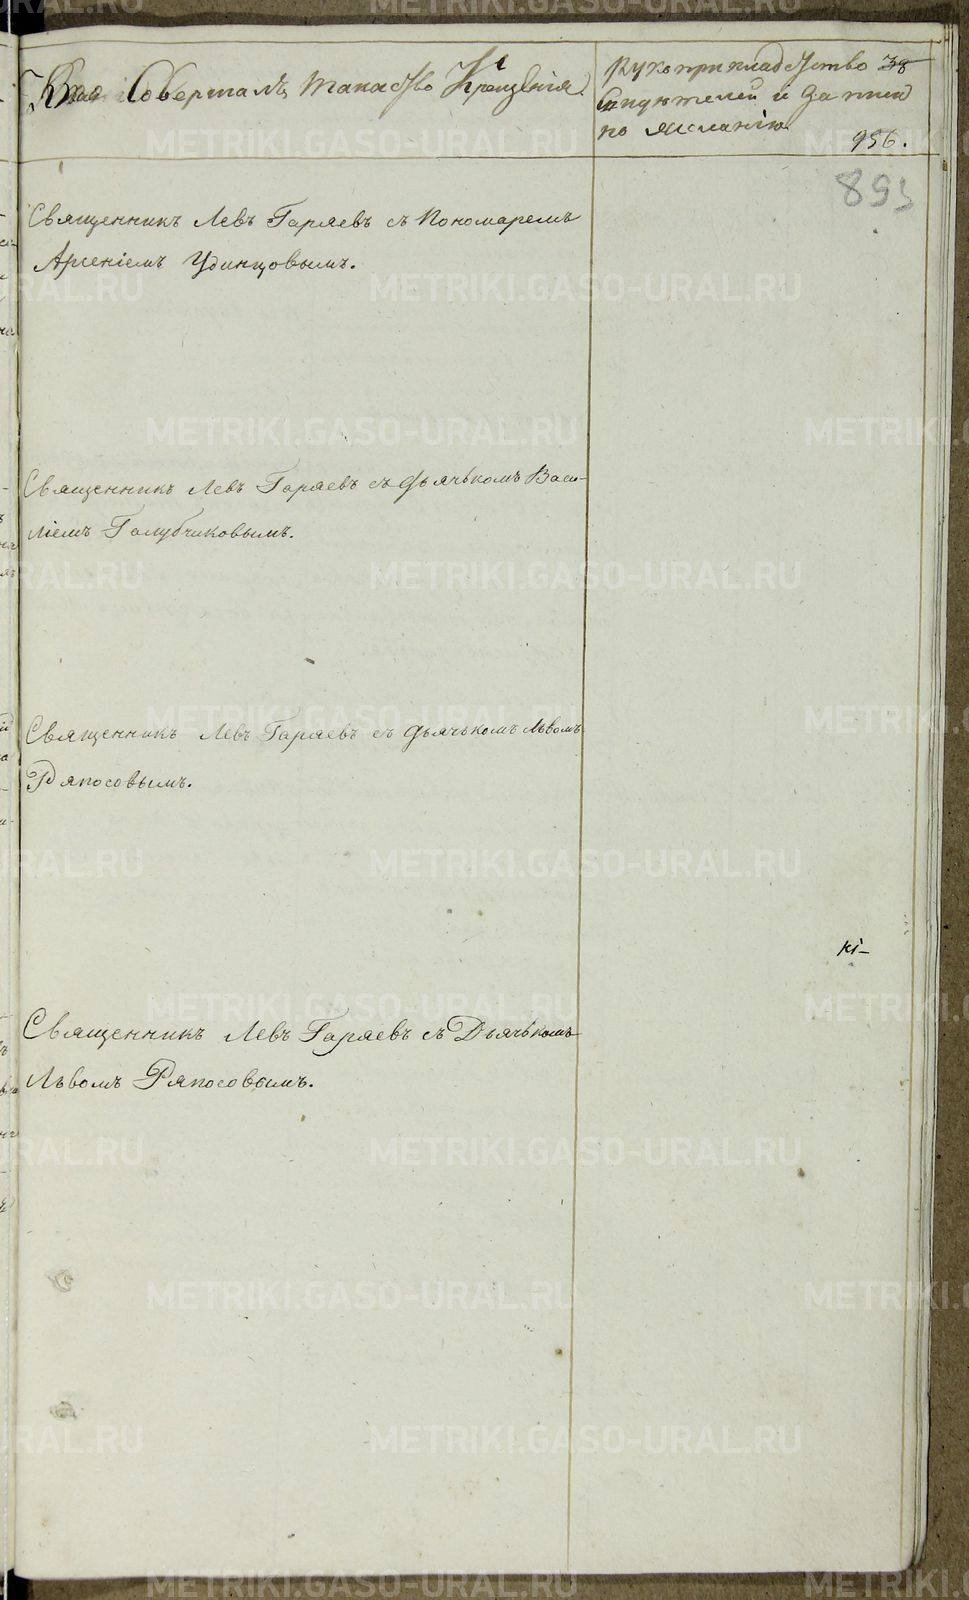 Кто Совершалъ таинство Крещенія.
Рукоприкладство 38
Свидѣтелей и записи
по желанію
956.
893
Священникъ Левъ Гаряевъ съ Пономаремъ
Арсеніемъ Удинцовымъ.
Священникъ Левъ Гаряевъ съ дьячькомъ Васи-
ліемъ Голубчиковымъ.
Священникъ Левъ Гаряевъ съ дьячькомъ Львомъ
Ряпосовымъ.
Священникъ Левъ Гаряевъ съ Дьячькомъ
Львомъ Ряпосовымъ.
METRIKI.GASO-URAL.RU